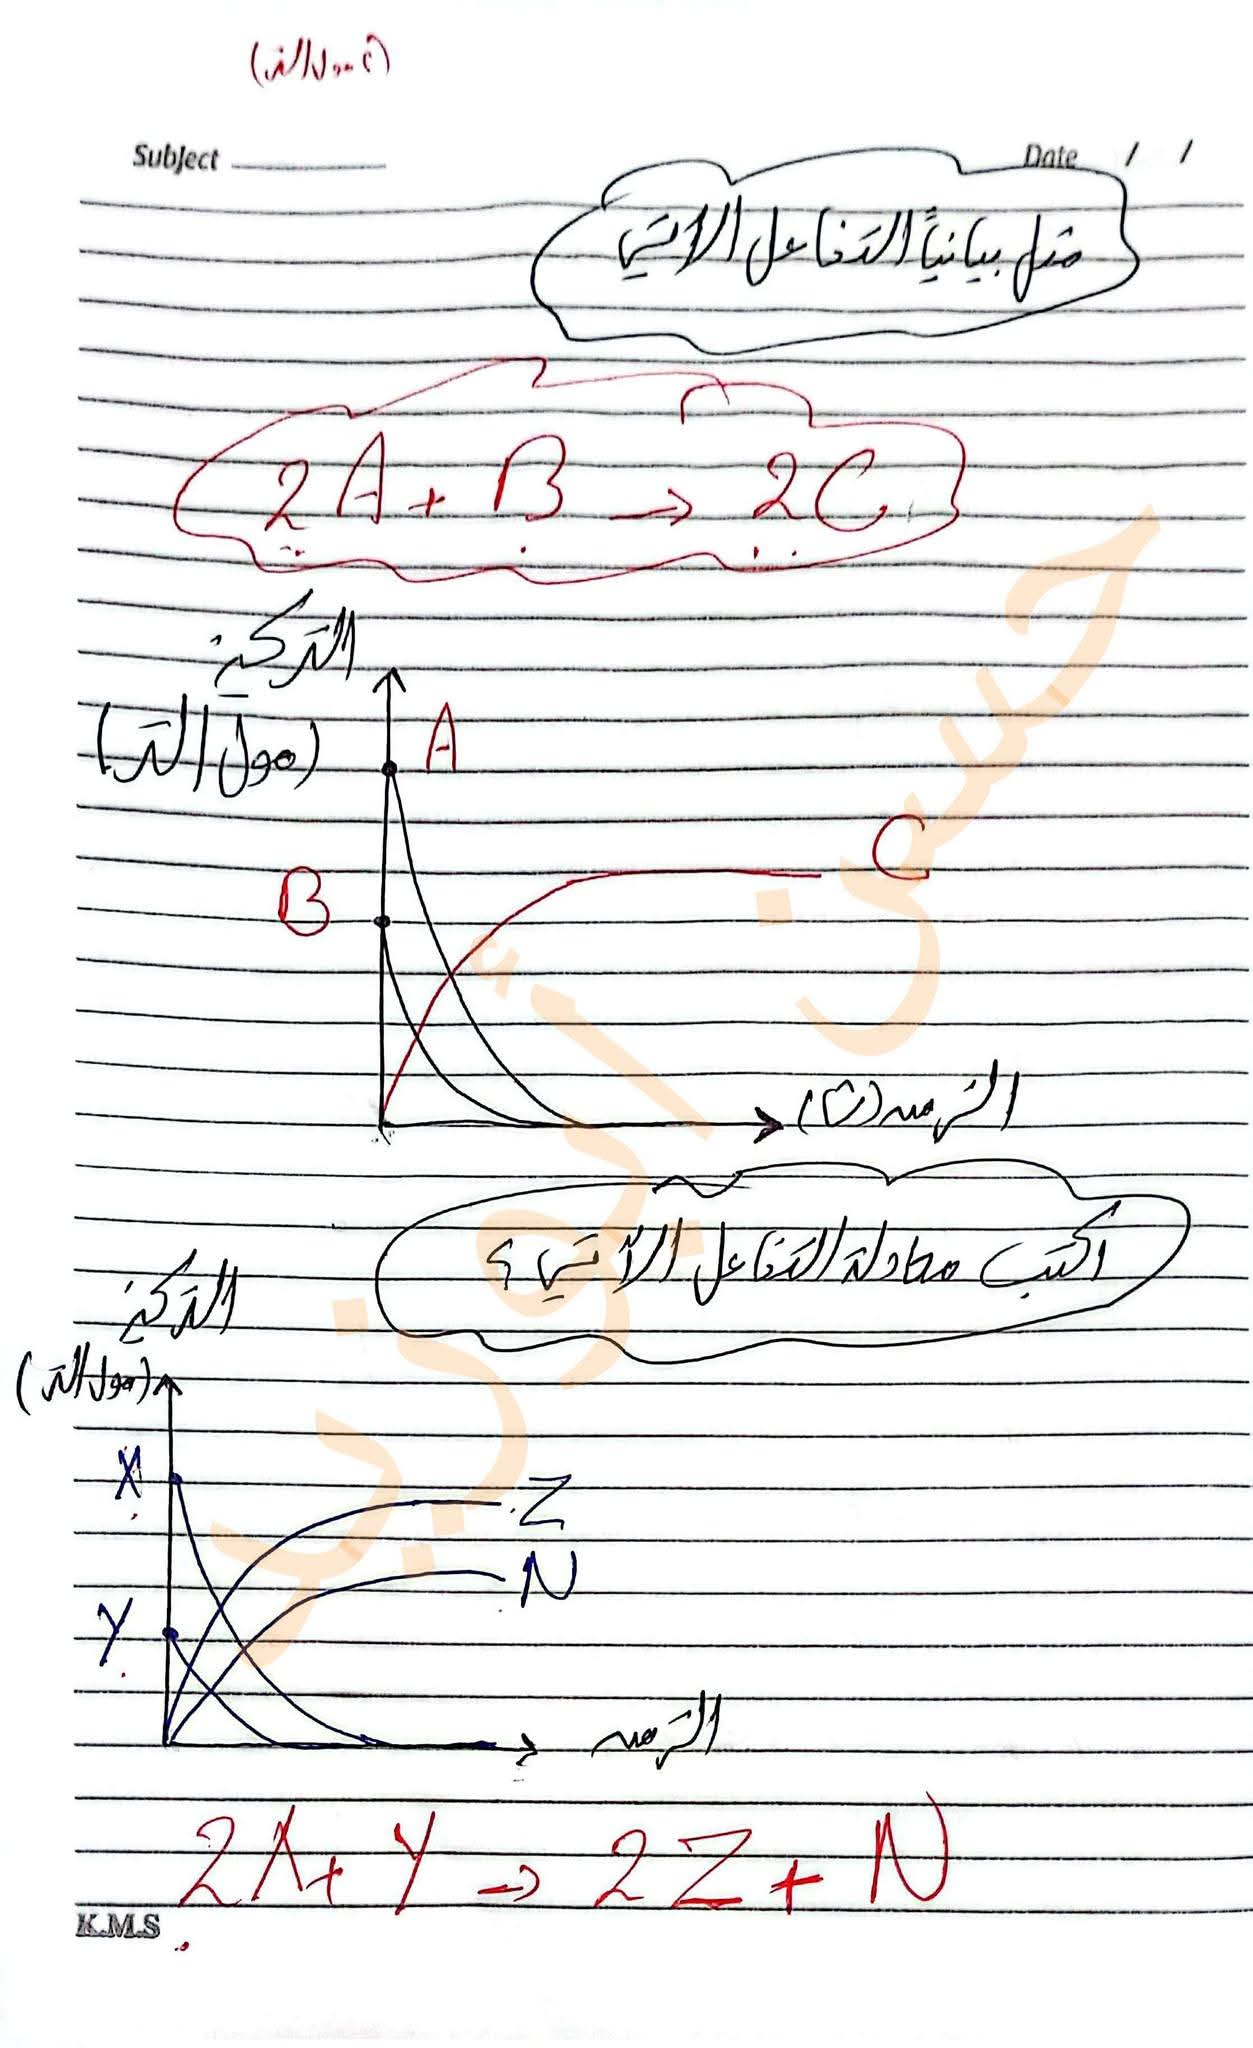 (مول/لتر)
Subject
Date / /
مثل بيانياً التفاعل الآتي
2A + B → 2C
التركيز
(مول/لتر)
A
B
C
الزمن (ث)
اكتب معادلة التفاعل الآتي ؟
التركيز
(مول/لتر)
X
Z
N
Y
الزمن
2X + Y → 2Z + N
K.M.S
حسين أبوزيد